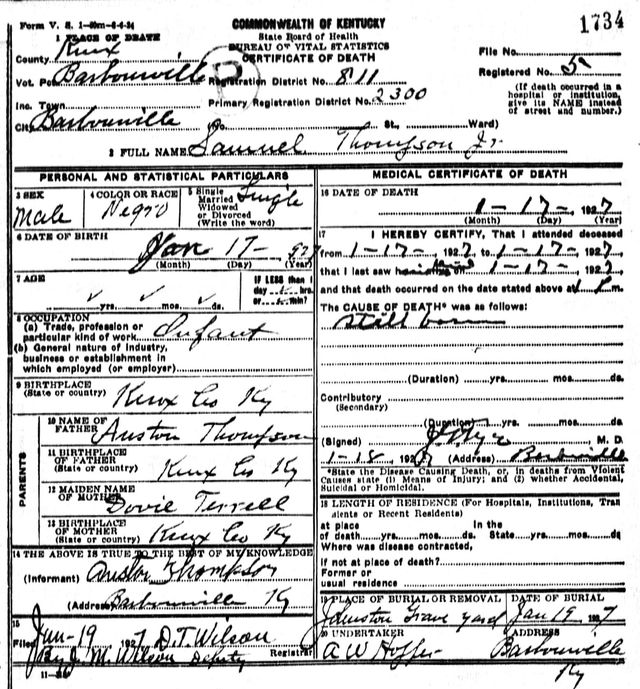 Form V. S. 1-50m-6-4-24
COMMONWEALTH OF KENTUCKY
State Board of Health
BUREAU OF VITAL STATISTICS
CERTIFICATE OF DEATH
1734
1 PLACE OF DEATH
County Knox
File No.
Vot. Pct. Barbourville
Registration District No. 811
Registered No. 5
Inc. Town
Primary Registration District No. 2300
(If death occurred in a hospital or institution, give its NAME instead of street and number.)
City Barbourville (No. St., Ward)
2 FULL NAME Samuel Thompson Jr
PERSONAL AND STATISTICAL PARTICULARS
3 SEX
Male
4 COLOR OR RACE
Negro
5 Single
Married
Widowed
or Divorced
(Write the word)
Single
6 DATE OF BIRTH
Jan 17- 927
(Month) (Day) (Year)
7 AGE
yrs. mos. ds.
IF LESS than 1
day hrs.
or min?
8 OCCUPATION
(a) Trade, profession or
particular kind of work Infant
(b) General nature of industry,
business or establishment in
which employed (or employer)
9 BIRTHPLACE
(State or country)
Knox Co Ky
PARENTS
10 NAME OF
FATHER Auston Thompson
11 BIRTHPLACE
OF FATHER
(State or country) Knox Co Ky
12 MAIDEN NAME
OF MOTHER Dovie Terrell
13 BIRTHPLACE
OF MOTHER
(State or country) Knox Co Ky
14 THE ABOVE IS TRUE TO THE BEST OF MY KNOWLEDGE
(Informant) Auston Thompson
(Address) Barbourville Ky
15
Filed Jan-19 1927 D.T. Wilson
Registrar
By J. M. Wilson Deputy
MEDICAL CERTIFICATE OF DEATH
16 DATE OF DEATH
1-17-, 1927
(Month) (Day) (Year)
17 I HEREBY CERTIFY, That I attended deceased
from 1-17-, 1927, to 1-17-, 1927,
that I last saw 1-17-, 1927,
and that death occurred on the date stated above at m.
The CAUSE OF DEATH* was as follows:
Still born
(Duration) yrs. mos. ds.
Contributory
(Secondary)
(Duration) yrs. mos. ds.
(Signed) M. D.
1-18, 192 (Address) Barbville
*State the Disease Causing Death, or, in deaths from Violent
Causes state (1) Means of Injury; and (2) whether Accidental,
Suicidal or Homicidal.
18 LENGTH OF RESIDENCE (For Hospitals, Institutions, Tran
sients or Recent Residents)
at place In the
of death yrs. mos. ds. State yrs. mos. ds.
Where was disease contracted,
If not at place of death?
Former or
usual residence
19 PLACE OF BURIAL OR REMOVAL
Johnston Grave yard
DATE OF BURIAL
Jan 19 1927
20 UNDERTAKER
A W Hoffer
ADDRESS
Barbourville
Ky